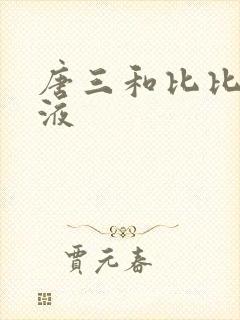 唐三和比比
液
贾元春